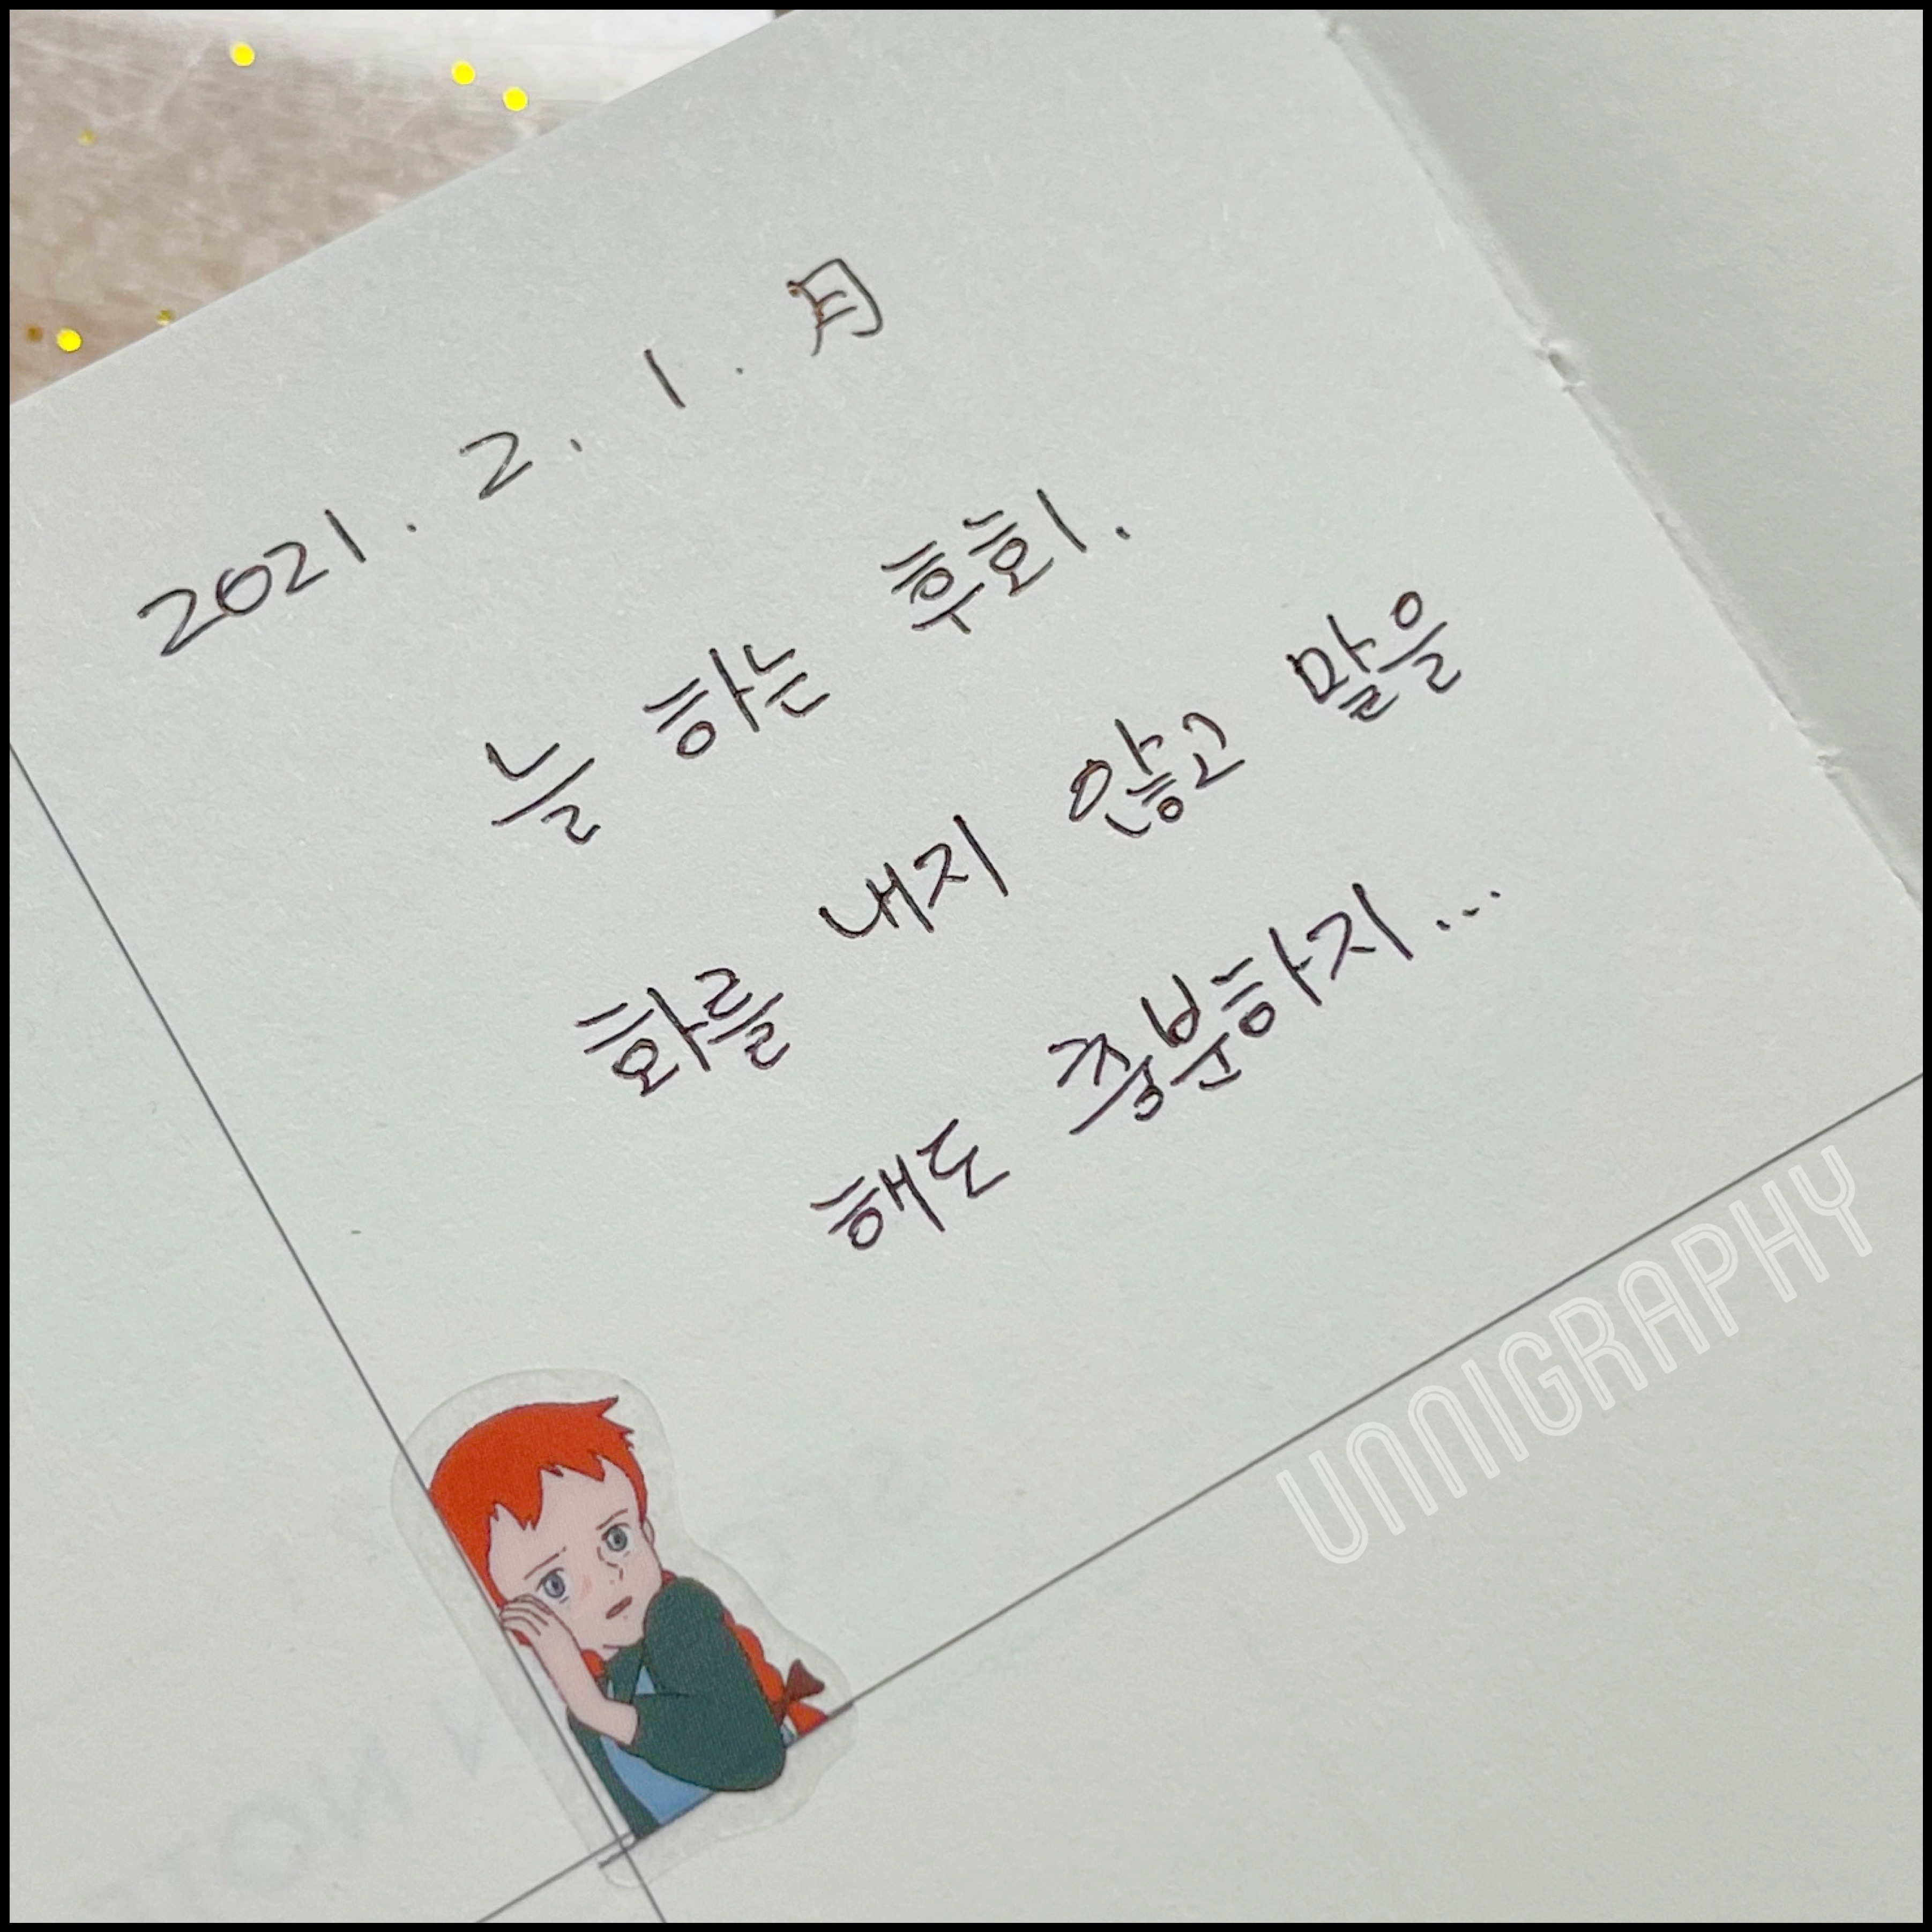 2021. 2. 1. 月
늘 하는 후회.
화를 내지 않고 말을
해도 충분하지...
UNNIGRAPHY